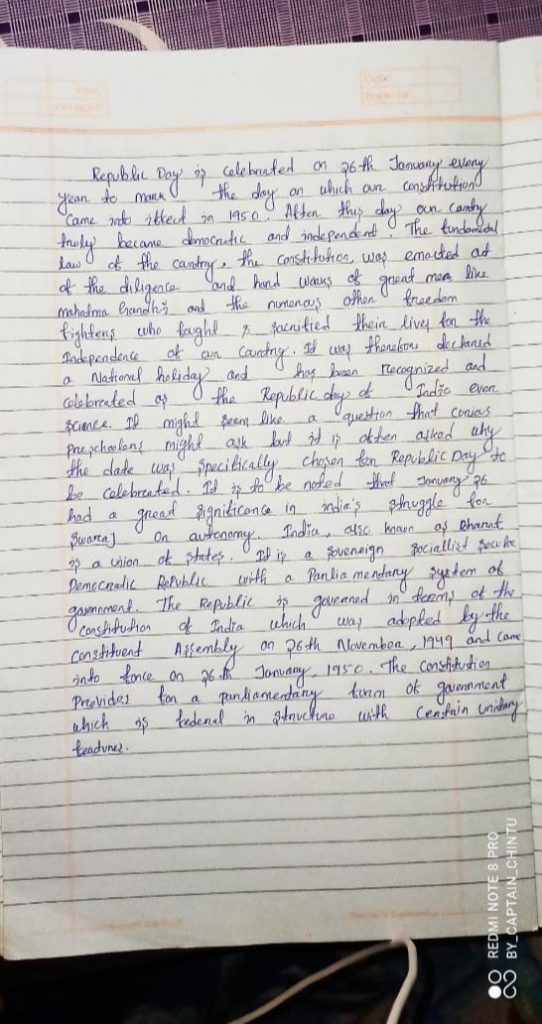 Republic Day is celebrated on 26th January every
year to mark the day on which our constitution
came into iffect in 1950. After this day our cantry
truly became democratic and independent. The fundamental
law of the cantry, the constitution, was emacted at
of the diligence and hard works of great men like
mahatma Gandhi's and the numerous other freedom
fighters who fought & sacrified their lives for the
Independence of our Country. It was therefore declared
a National holiday and has been recognized and
celebreated as the Republic day of India ever
science. It might seem like a question that curious
preschoolers might ask but it is often asked why
the date was specifically chosen for Republic Day to
be calebreated. It is to be noted that January 26
had a great significance in india's struggle for
Swaraj or autonomy. India, also known as Bharat
is a union of states. It is a sovereign sociallist secular
Democratic Republic with a Parlia mendary system of
government. The Republic is governed in terms of the
constitution of India which was adopted by the
Constituent Assembly on 26th November, 1949 and came
into force on 26th January, 1950. The constitution
Provides for a parliamentary form of government
which is federal in structure with certain unitary
features.
REDMI NOTE 8 PRO
BY_CAPTAIN_CHINTU